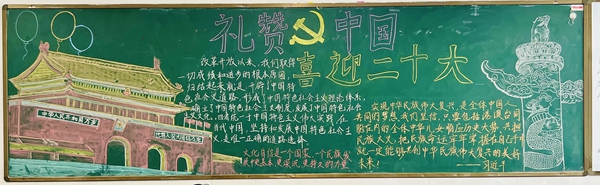 礼赞中国
喜迎二十大
改革开放以来,我们取得
一切成绩和进步的根本原因,
归结起来就是:开辟了中国特
色社会主义道路,形成了中国特色社会主义理论体系,
确立了中国特色社会主义制度,发展了中国特色社会
主义文化。
当代中国,坚持和发展中国特色社会主
义,是唯一正确的道路选择
文化自信是一个国家、一个民族发
展中更基本、更深沉、更持久的力量
中华人民共和国万岁
世界人民大团结万岁
实现中华民族伟大复兴,是全体中国人
共同的梦想。我们坚信,只要包括港澳台同
胞在内的全体中华儿女顺应历史大势、共担
民族大义,把民族命运牢牢掌握在自己手中
就一定能够共创中华民族伟大复兴的美好
未来!
习近平